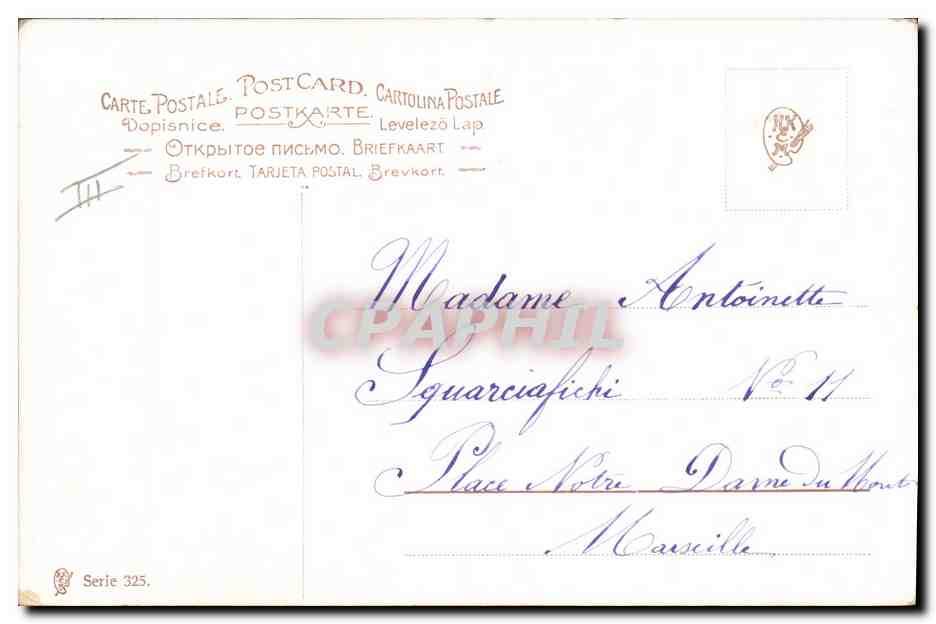 CARTE POSTALE. POSTCARD. CARTOLINA POSTALE
Dopisnice. POSTKARTE. Levelező Lap
Открытое письмо. BRIEFKAART
Brefkort. TARJETA POSTAL. Brevkort.
III
Madame Antoinette
CPAPHIL
Squarciafichi No. 11
Place Notre Dame du Mont
Marseille
Serie 325.